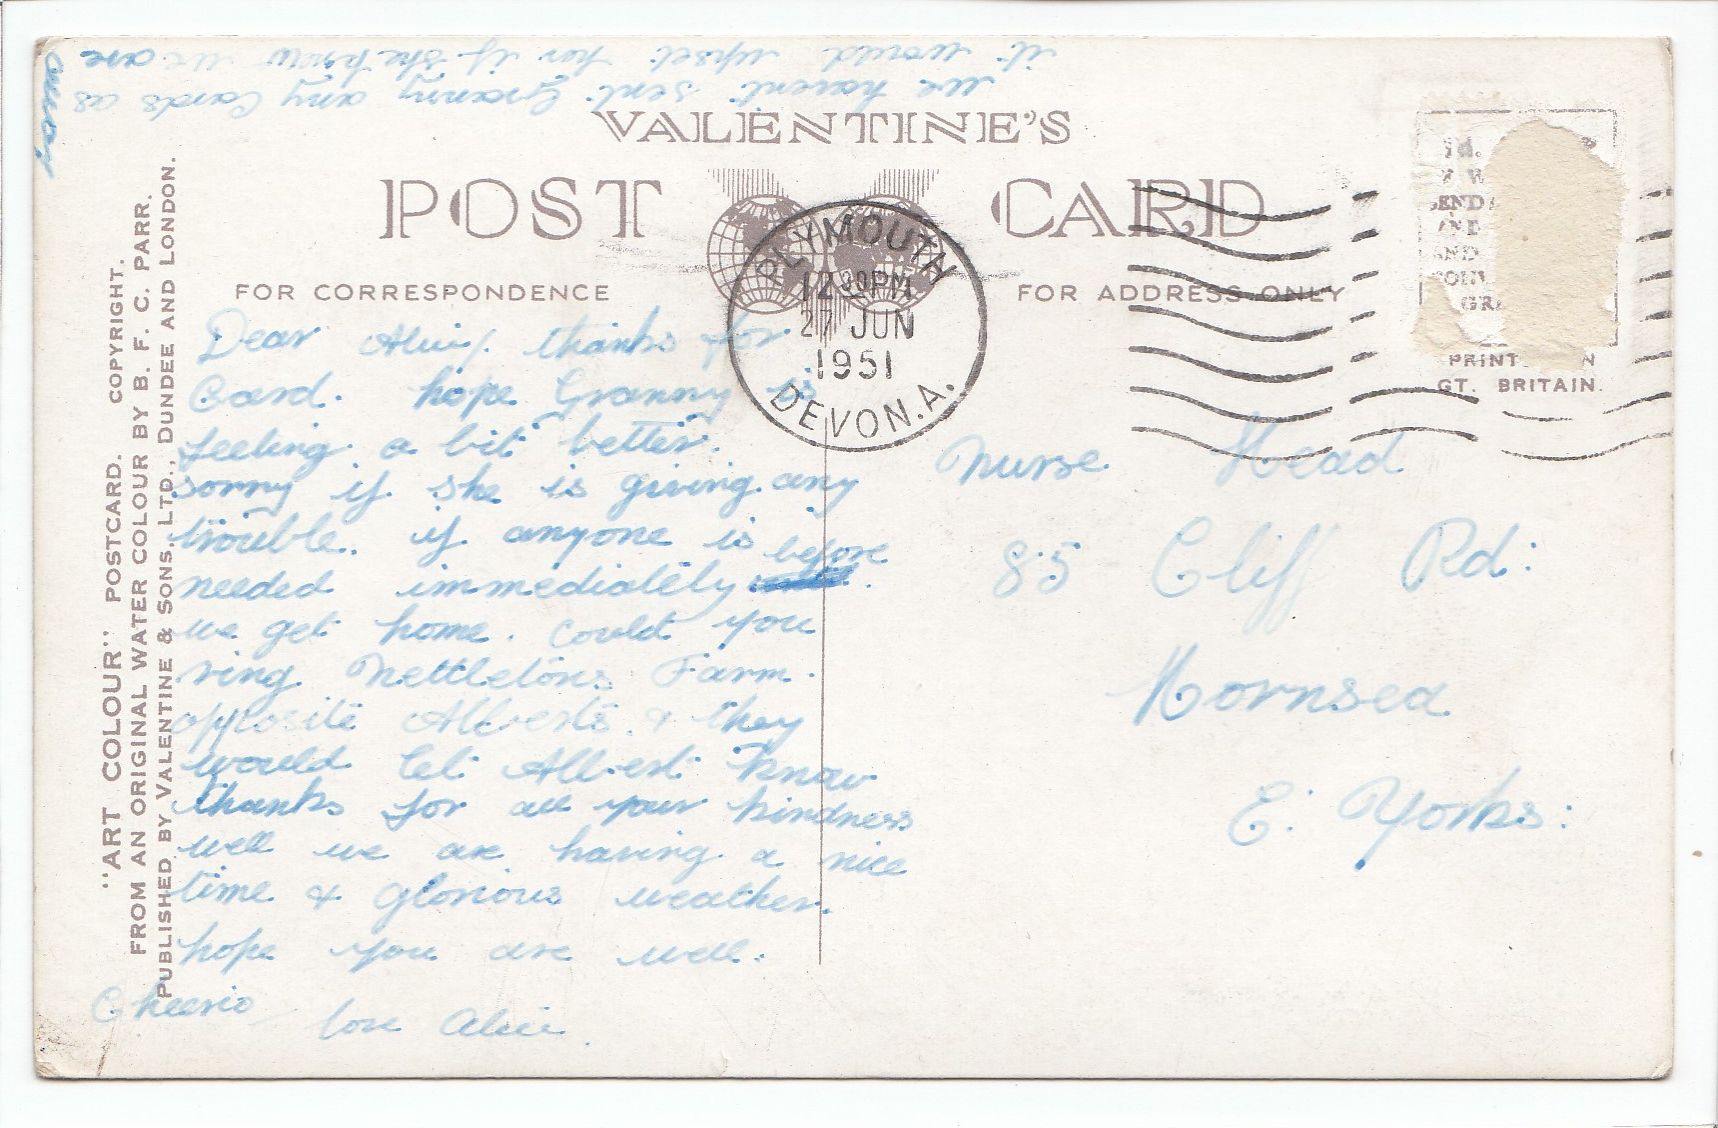 we havent sent Granny any Cards as
it would upset her if she knew we are
away
VALENTINE'S
POST CARD
FOR CORRESPONDENCE
FOR ADDRESS ONLY
PLYMOUTH
12 30PM
27 JUN
1951
DEVON.A.
PRINT N
GT. BRITAIN.
"ART COLOUR" POSTCARD. COPYRIGHT.
FROM AN ORIGINAL WATER COLOUR BY B. F. C. PARR.
PUBLISHED BY VALENTINE & SONS. LTD., DUNDEE AND LONDON.
Dear thanks for
Card. hope Granny is
feeling a bit better.
sorry if she is giving any
trouble. if anyone is
needed immediately before
we get home. Could you
ring Nettletons Farm.
opposite Alberts & they
would let Albert know
thanks for all your kindness
well we are having a nice
time & glorious weather.
hope you are well.
Cheerio
love Alice.
Nurse Head
85 Cliff Rd:
Hornsea
E. Yorks: